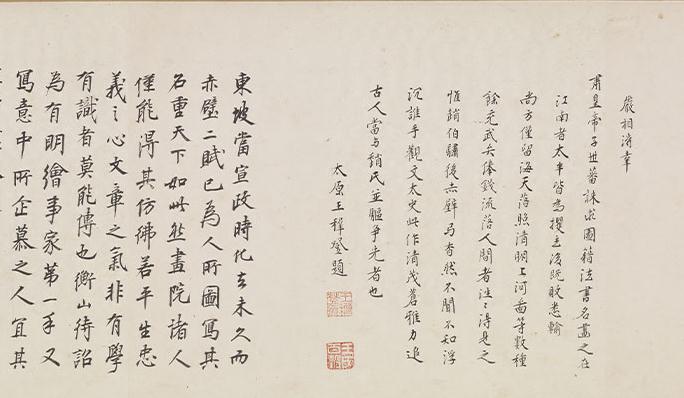 嚴相濟幸
肅皇帝子世蕃誅求圖籍法書名畫之在
江南者太半皆為攫去後既敗悉輸
尚方僅留海天落照清明上河圖等數種
餘充武夫俸錢流落人間者往〻得見之
惟趙伯驌後赤壁杳然不聞不知浮
沉誰手觀文太史此作清茂蒼雅力追
古人當与趙氏並驅爭先者也
太原王穉登題
東坡當宣政時化去未久而
赤壁二賦已為人所圖寫其
名重天下如此然畫院諸人
僅能得其仿彿若平生忠
義之心文章之氣非有學
有識者莫能傳也衡山待詔
為有明繪事家第一手又
寫意中所企慕之人宜其